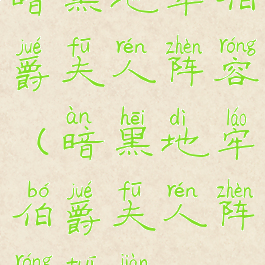 暗黑地牢伯
jué fū rén zhèn róng
爵夫人阵容
àn hēi dì láo
（暗黑地牢
bó jué fū rén zhèn
伯爵夫人阵
róng tuī jiàn